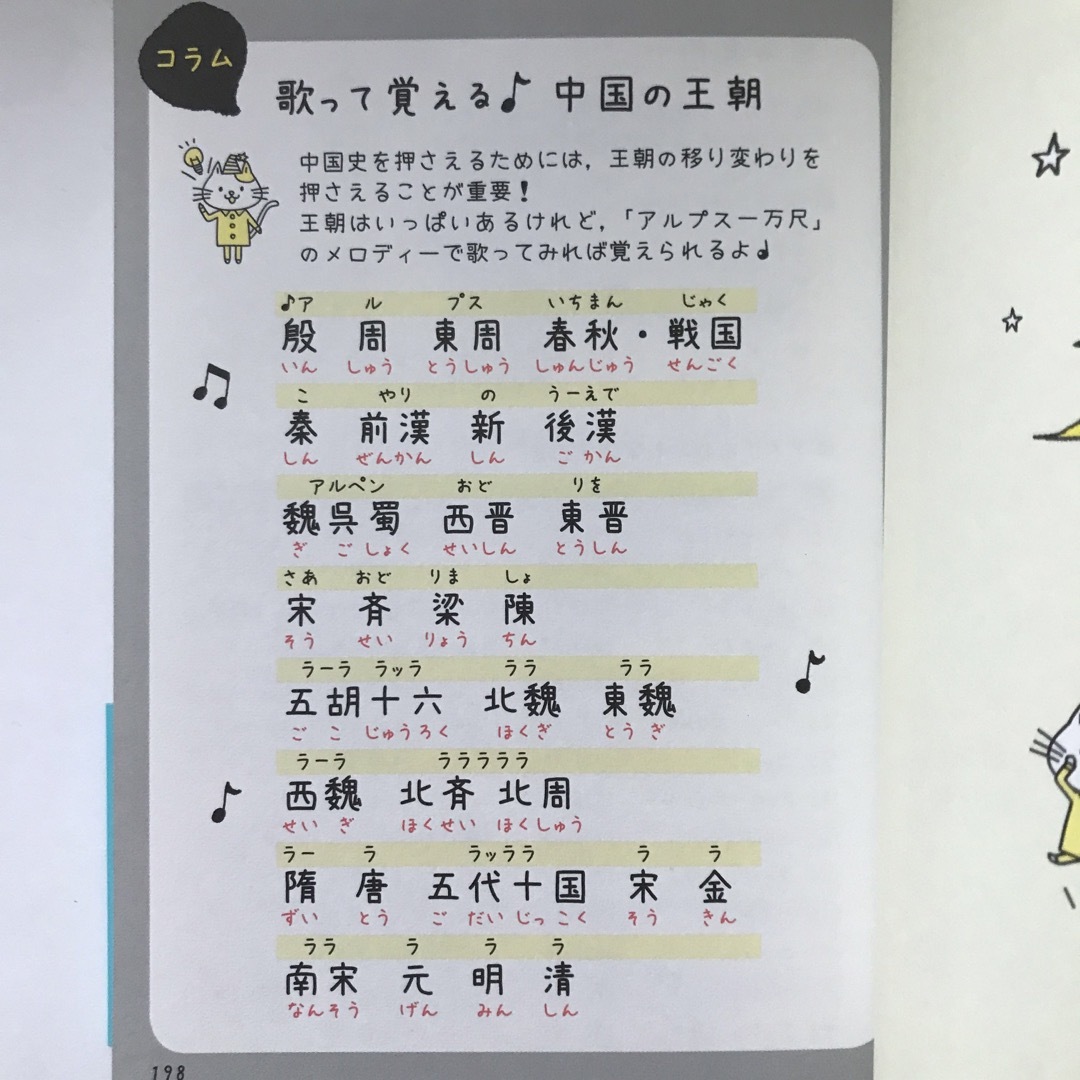 コラム
歌って覚える♪ 中国の王朝
中国史を押さえるためには，王朝の移り変わりを
押さえることが重要！
王朝はいっぱいあるけれど，「アルプス一万尺」
のメロディーで歌ってみれば覚えられるよ♩
♪ア ル プス いちまん じゃく
殷 周 東周 春秋・戦国
いん しゅう とうしゅう しゅんじゅう せんごく
こ やり の うーえで
秦 前漢 新 後漢
しん ぜんかん しん ごかん
アルペン おど りを
魏呉蜀 西晋 東晋
ぎ ご しょく せいしん とうしん
さあ おど りま しょ
宋 斉 梁 陳
そう せい りょう ちん
ラーラ ラッラ ララ ララ
五胡十六 北魏 東魏
ご こ じゅうろく ほくぎ とうぎ
ラーラ ラララララ
西魏 北斉 北周
せいぎ ほくせい ほくしゅう
ラー ラ ラッララ ラ ラ
隋 唐 五代十国 宋 金
ずい とう ご だい じっ こく そう きん
ララ ラ ラ ラ
南宋 元 明 清
なんそう げん みん しん
198